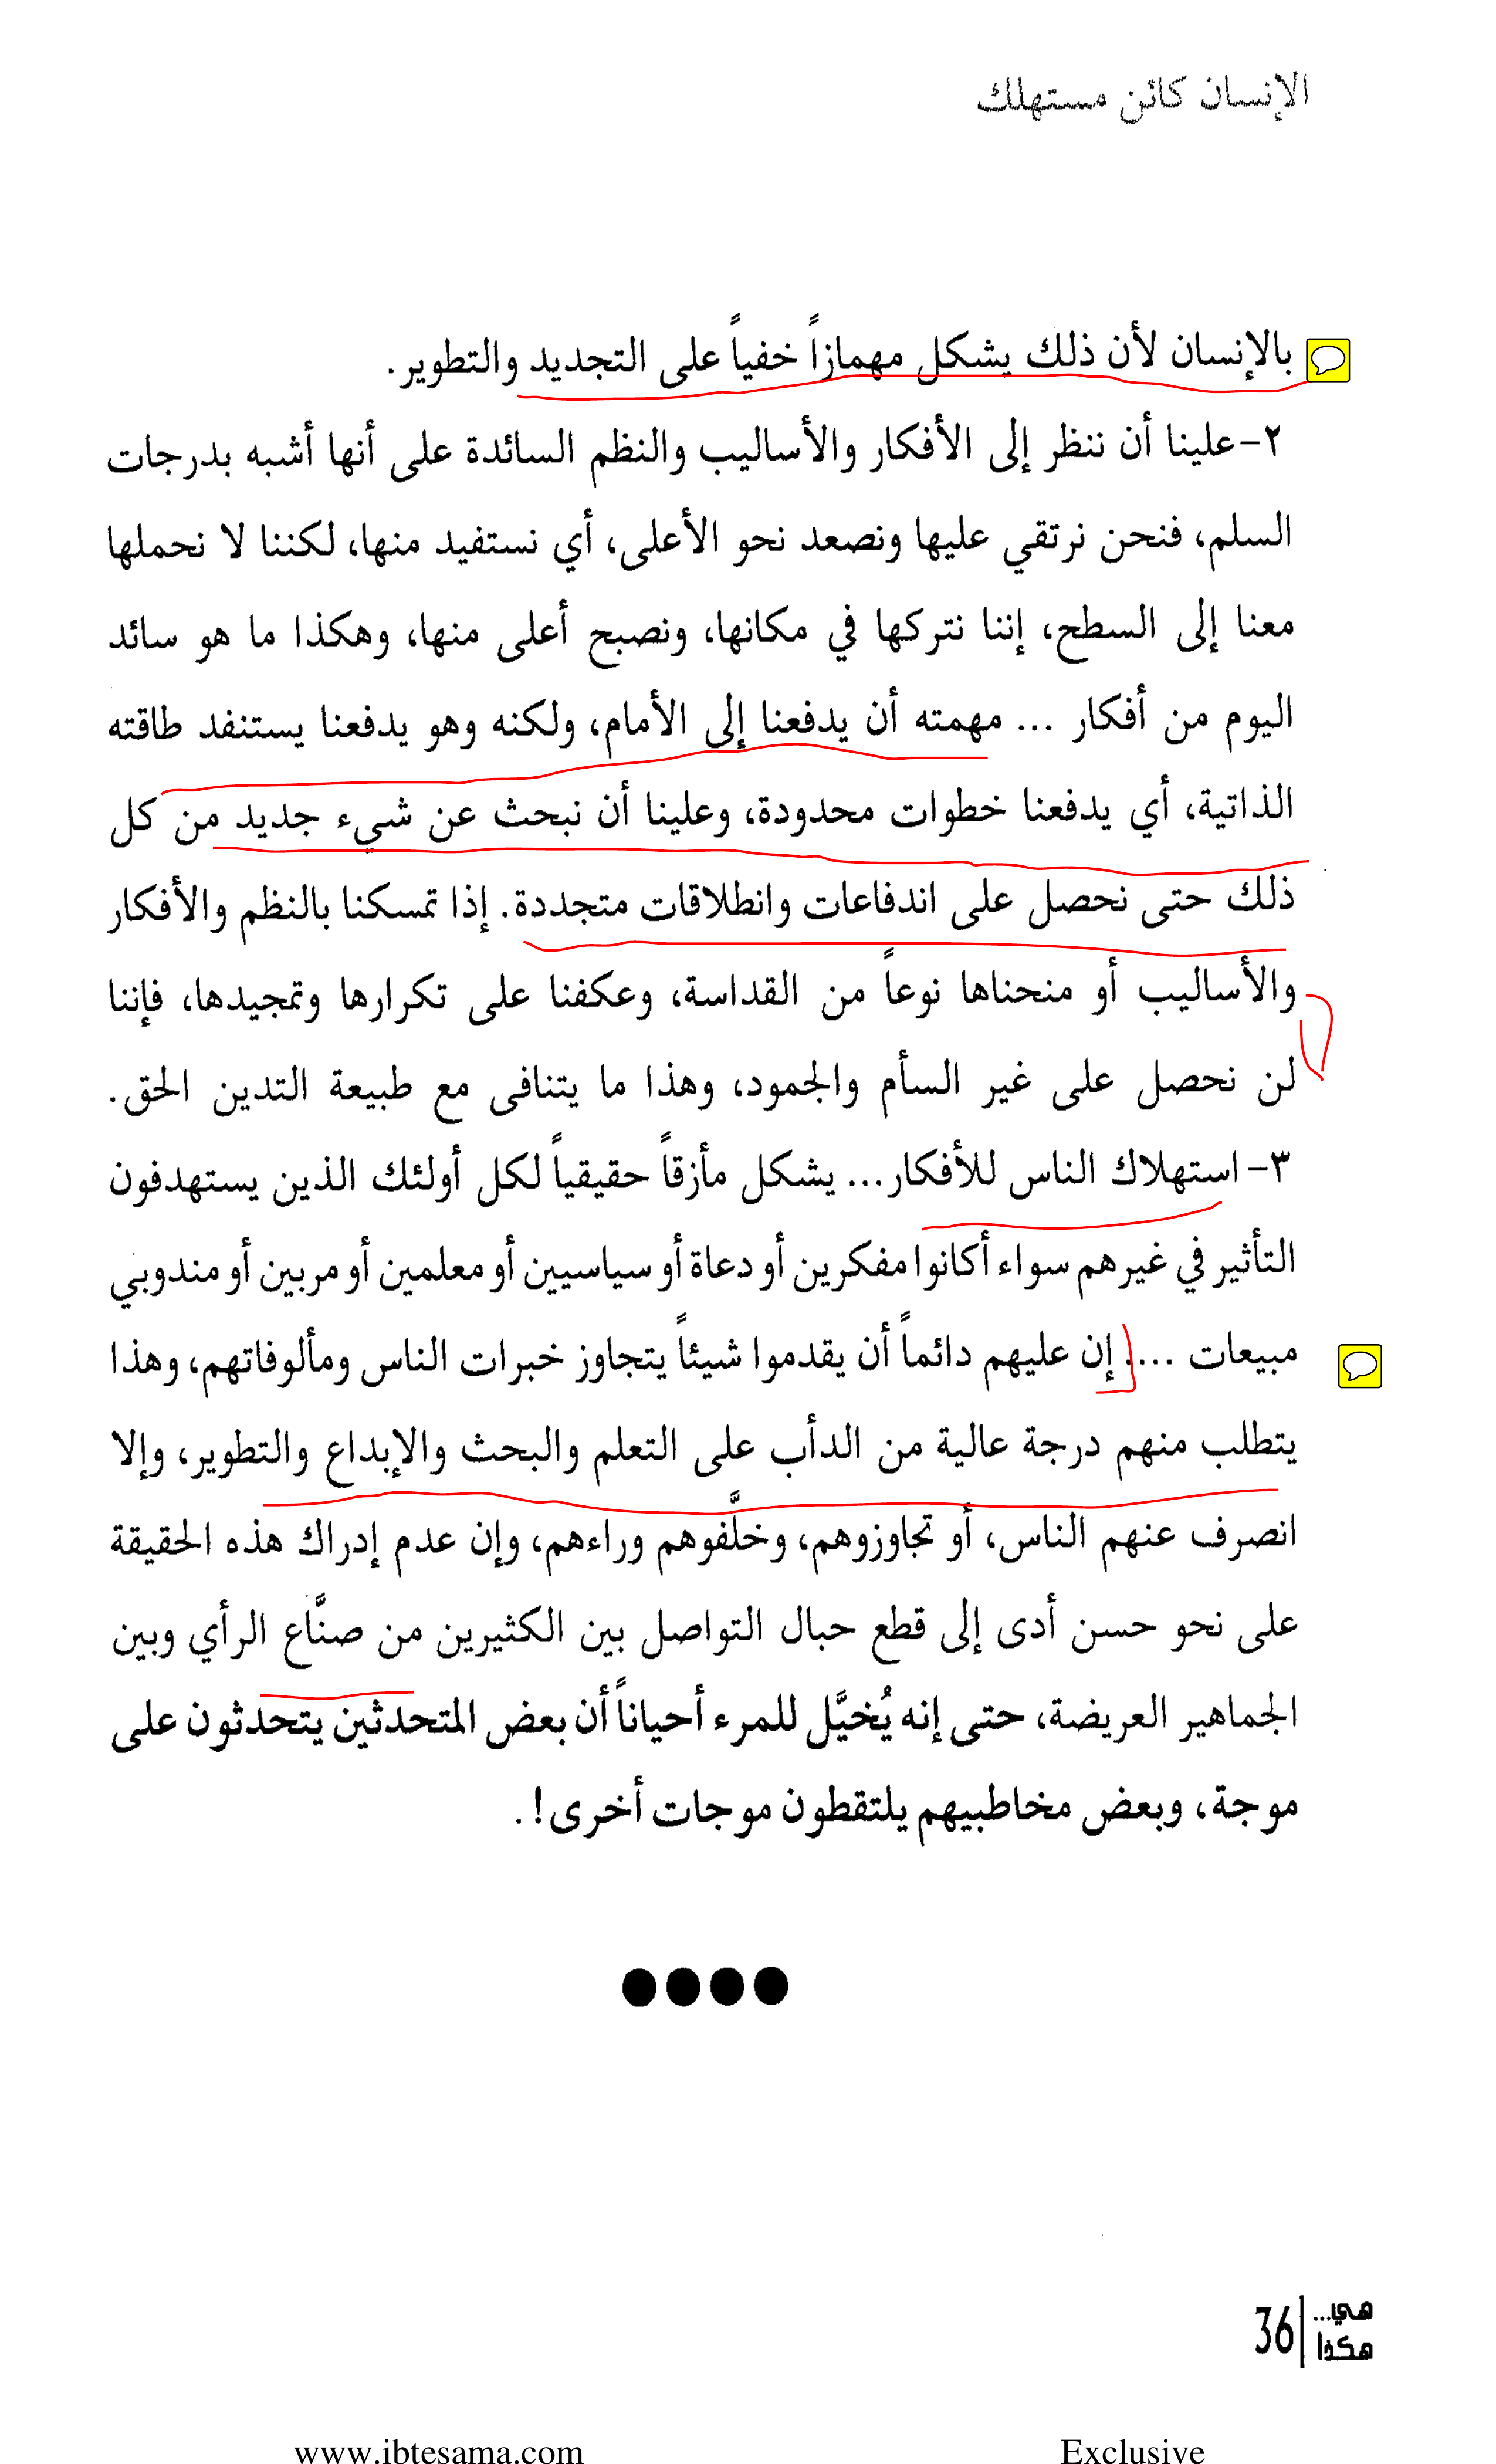 الإنسان كائن مستهلك
بالإنسان لأن ذلك يشكل مهمازاً خفياً على التجديد والتطوير.
٢-علينا أن ننظر إلى الأفكار والأساليب والنظم السائدة على أنها أشبه بدرجات
السلم، فنحن نرتقي عليها ونصعد نحو الأعلى، أي نستفيد منها، لكننا لا نحملها
معنا إلى السطح، إننا نتركها في مكانها، ونصبح أعلى منها، وهكذا ما هو سائد
اليوم من أفكار ... مهمته أن يدفعنا إلى الأمام، ولكنه وهو يدفعنا يستنفد طاقته
الذاتية، أي يدفعنا خطوات محدودة، وعلينا أن نبحث عن شيء جديد من كل
ذلك حتى نحصل على اندفاعات وانطلاقات متجددة. إذا تمسكنا بالنظم والأفكار
والأساليب أو منحناها نوعاً من القداسة، وعكفنا على تكرارها وتمجيدها، فإننا
لن نحصل على غير السأم والجمود، وهذا ما يتنافى مع طبيعة التدين الحق.
٣- استهلاك الناس للأفكار... يشكل مأزقاً حقيقياً لكل أولئك الذين يستهدفون
التأثير في غيرهم سواء أكانوا مفكرين أو دعاة أو سياسيين أو معلمين أو مربين أو مندوبي
مبيعات .... إن عليهم دائماً أن يقدموا شيئاً يتجاوز خبرات الناس ومألوفاتهم، وهذا
يتطلب منهم درجة عالية من الدأب على التعلم والبحث والإبداع والتطوير، وإلا
انصرف عنهم الناس، أو تجاوزوهم، وخلَّفوهم وراءهم، وإن عدم إدراك هذه الحقيقة
على نحو حسن أدى إلى قطع حبال التواصل بين الكثيرين من صنَّاع الرأي وبين
الجماهير العريضة، حتى إنه يُخيَّل للمرء أحياناً أن بعض المتحدثين يتحدثون على
موجة، وبعض مخاطبيهم يلتقطون موجات أخرى!.
هي...
هكذا
36
www.ibtesama.com
Exclusive